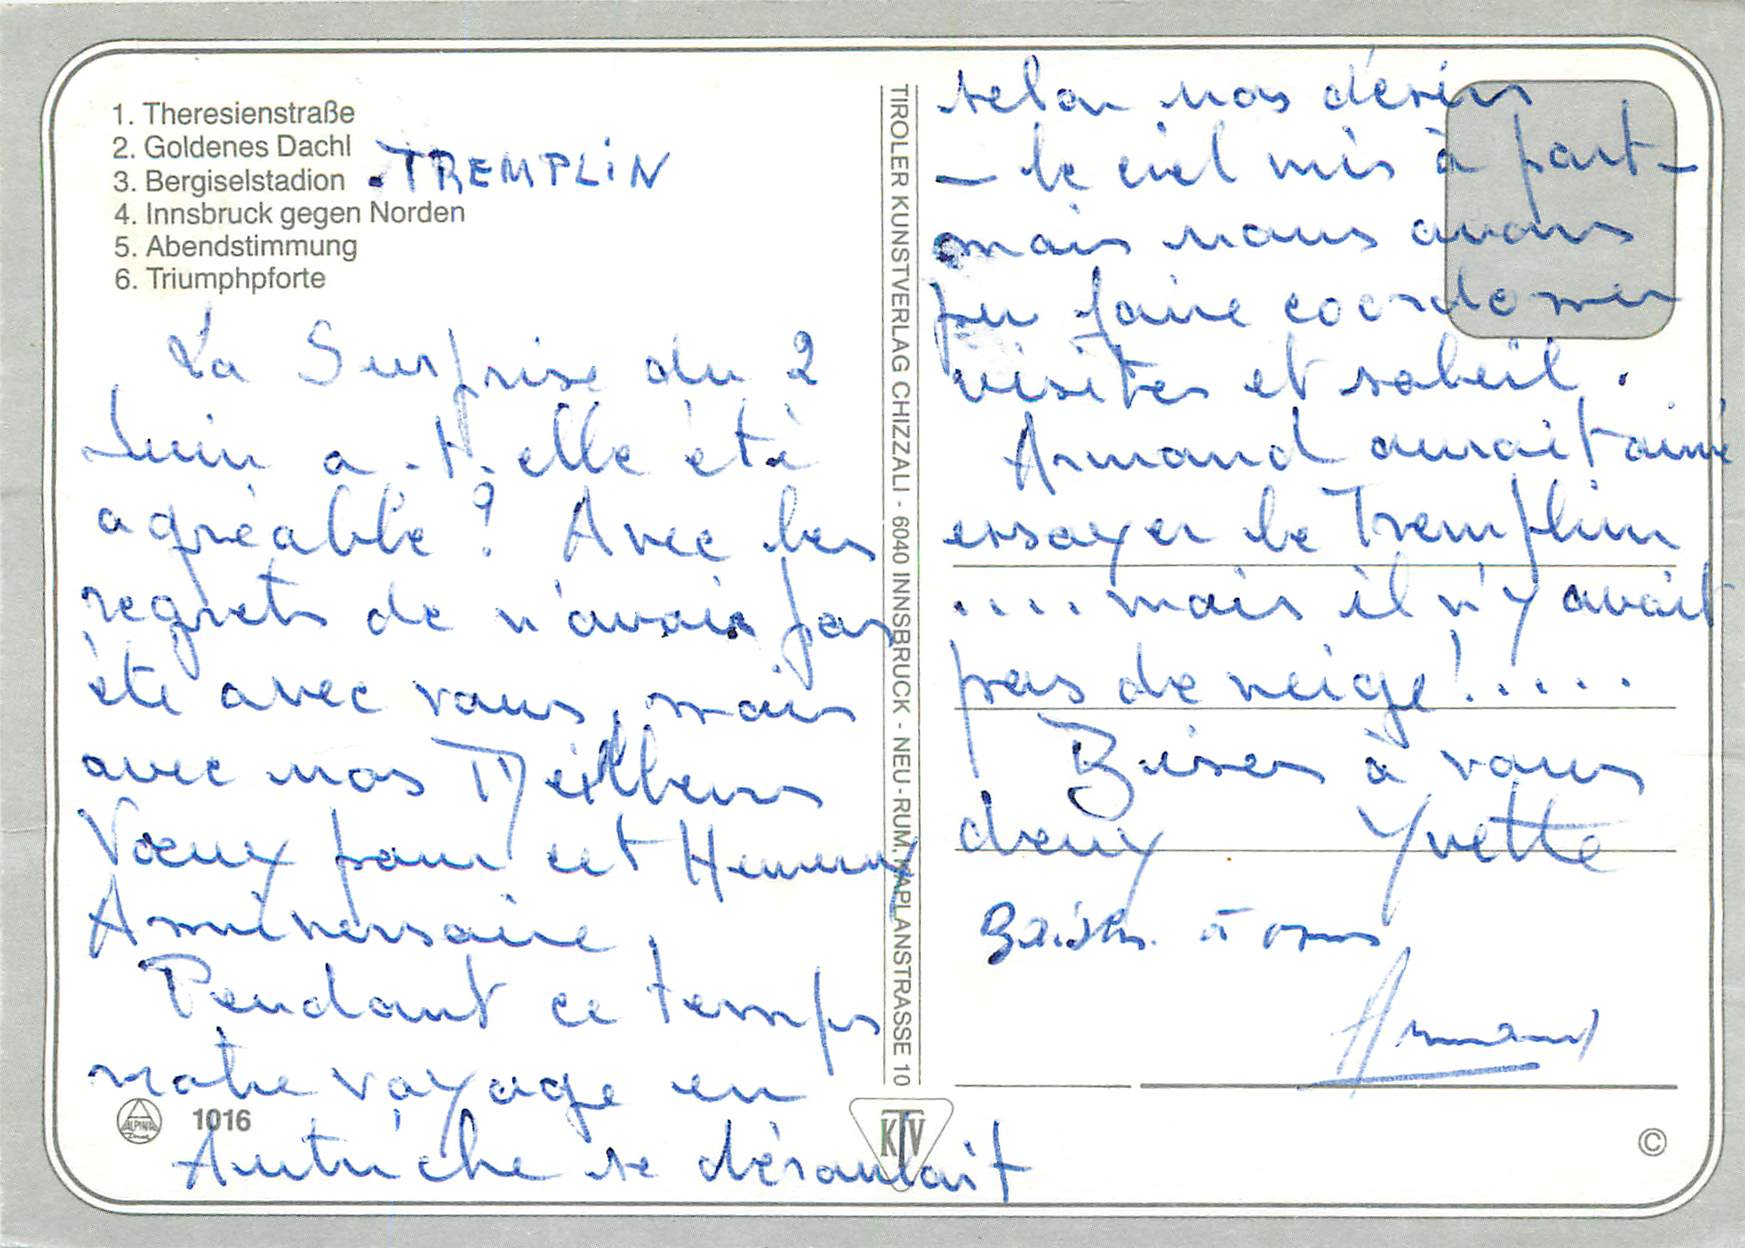 1. Theresienstraße
2. Goldenes Dachl
3. Bergiselstadion . TREMPLiN
4. Innsbruck gegen Norden
5. Abendstimmung
6. Triumphpforte
La Surprise du 2
Juin a-t-elle été
agréable ? Avec les
regrets de n'avoir pas
été avec vous, mais
avec nos Meilleurs
Vœux pour cet Heureux
Anniversaire,
Pendant ce temps
notre voyage en
Autriche se déroulait
1016
ALPINA
TIROLER KUNSTVERLAG CHIZZALI - 6040 INNSBRUCK - NEU-RUM, KAPLANSTRASSE 10
KTV
selon nos désirs
- le ciel mis à part -
mais nous avons
pu faire coordonner
visites et soleil.
Armand aurait aimé
essayer le Tremplin
.... mais il n'y avait
pas de neige!.....
Bises à vous
deux Yvette
à vous
Armand
©